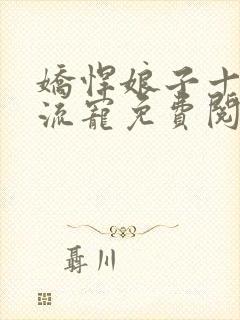 嬌悍娘子十
流寵免費閱
聶川